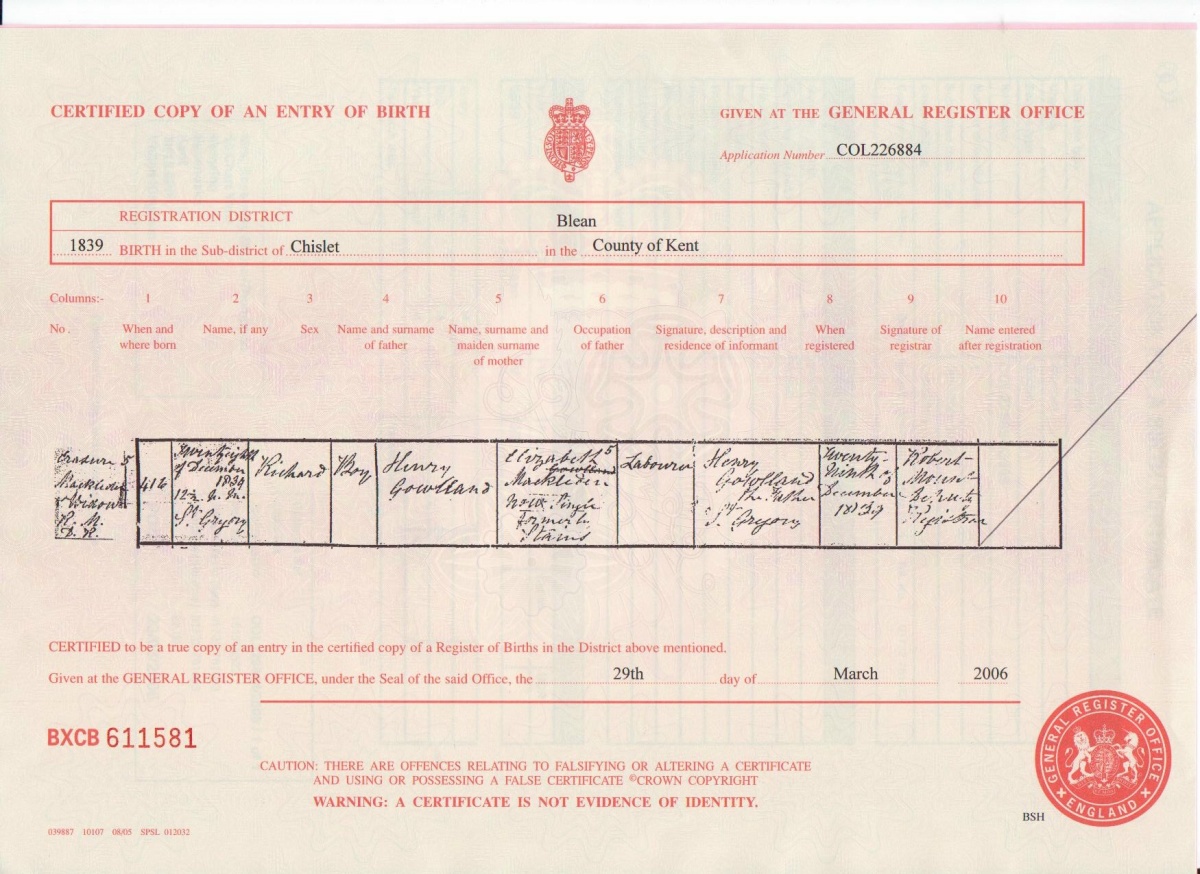 CERTIFIED COPY OF AN ENTRY OF BIRTH
GIVEN AT THE GENERAL REGISTER OFFICE
Application Number COL226884
REGISTRATION DISTRICT Blean
1839 BIRTH in the Sub-district of Chislet in the County of Kent
Columns:- 1 2 3 4 5 6 7 8 9 10
No. When and Name, if any Sex Name and surname Name, surname and Occupation Signature, description and When Signature of Name entered
where born of father maiden surname of father residence of informant registered registrar after registration
of mother
Erasure 5
416
of December
1839
St. Gregory
Richard
Boy
Henry
Gowlland
Elizabeth 5
Gowlland
now Single
formerly
Stains
Labourer
Henry
Gowlland
the Father
St. Gregory
Twenty
Ninth of
December
1839
Robert
Mount
Deputy
Registrar
CERTIFIED to be a true copy of an entry in the certified copy of a Register of Births in the District above mentioned.
Given at the GENERAL REGISTER OFFICE, under the Seal of the said Office, the 29th day of March 2006
BXCB 611581
CAUTION: THERE ARE OFFENCES RELATING TO FALSIFYING OR ALTERING A CERTIFICATE
AND USING OR POSSESSING A FALSE CERTIFICATE ©CROWN COPYRIGHT
WARNING: A CERTIFICATE IS NOT EVIDENCE OF IDENTITY.
GENERAL REGISTER OFFICE
ENGLAND
BSH
039887 10107 08/05 SPSL 012032